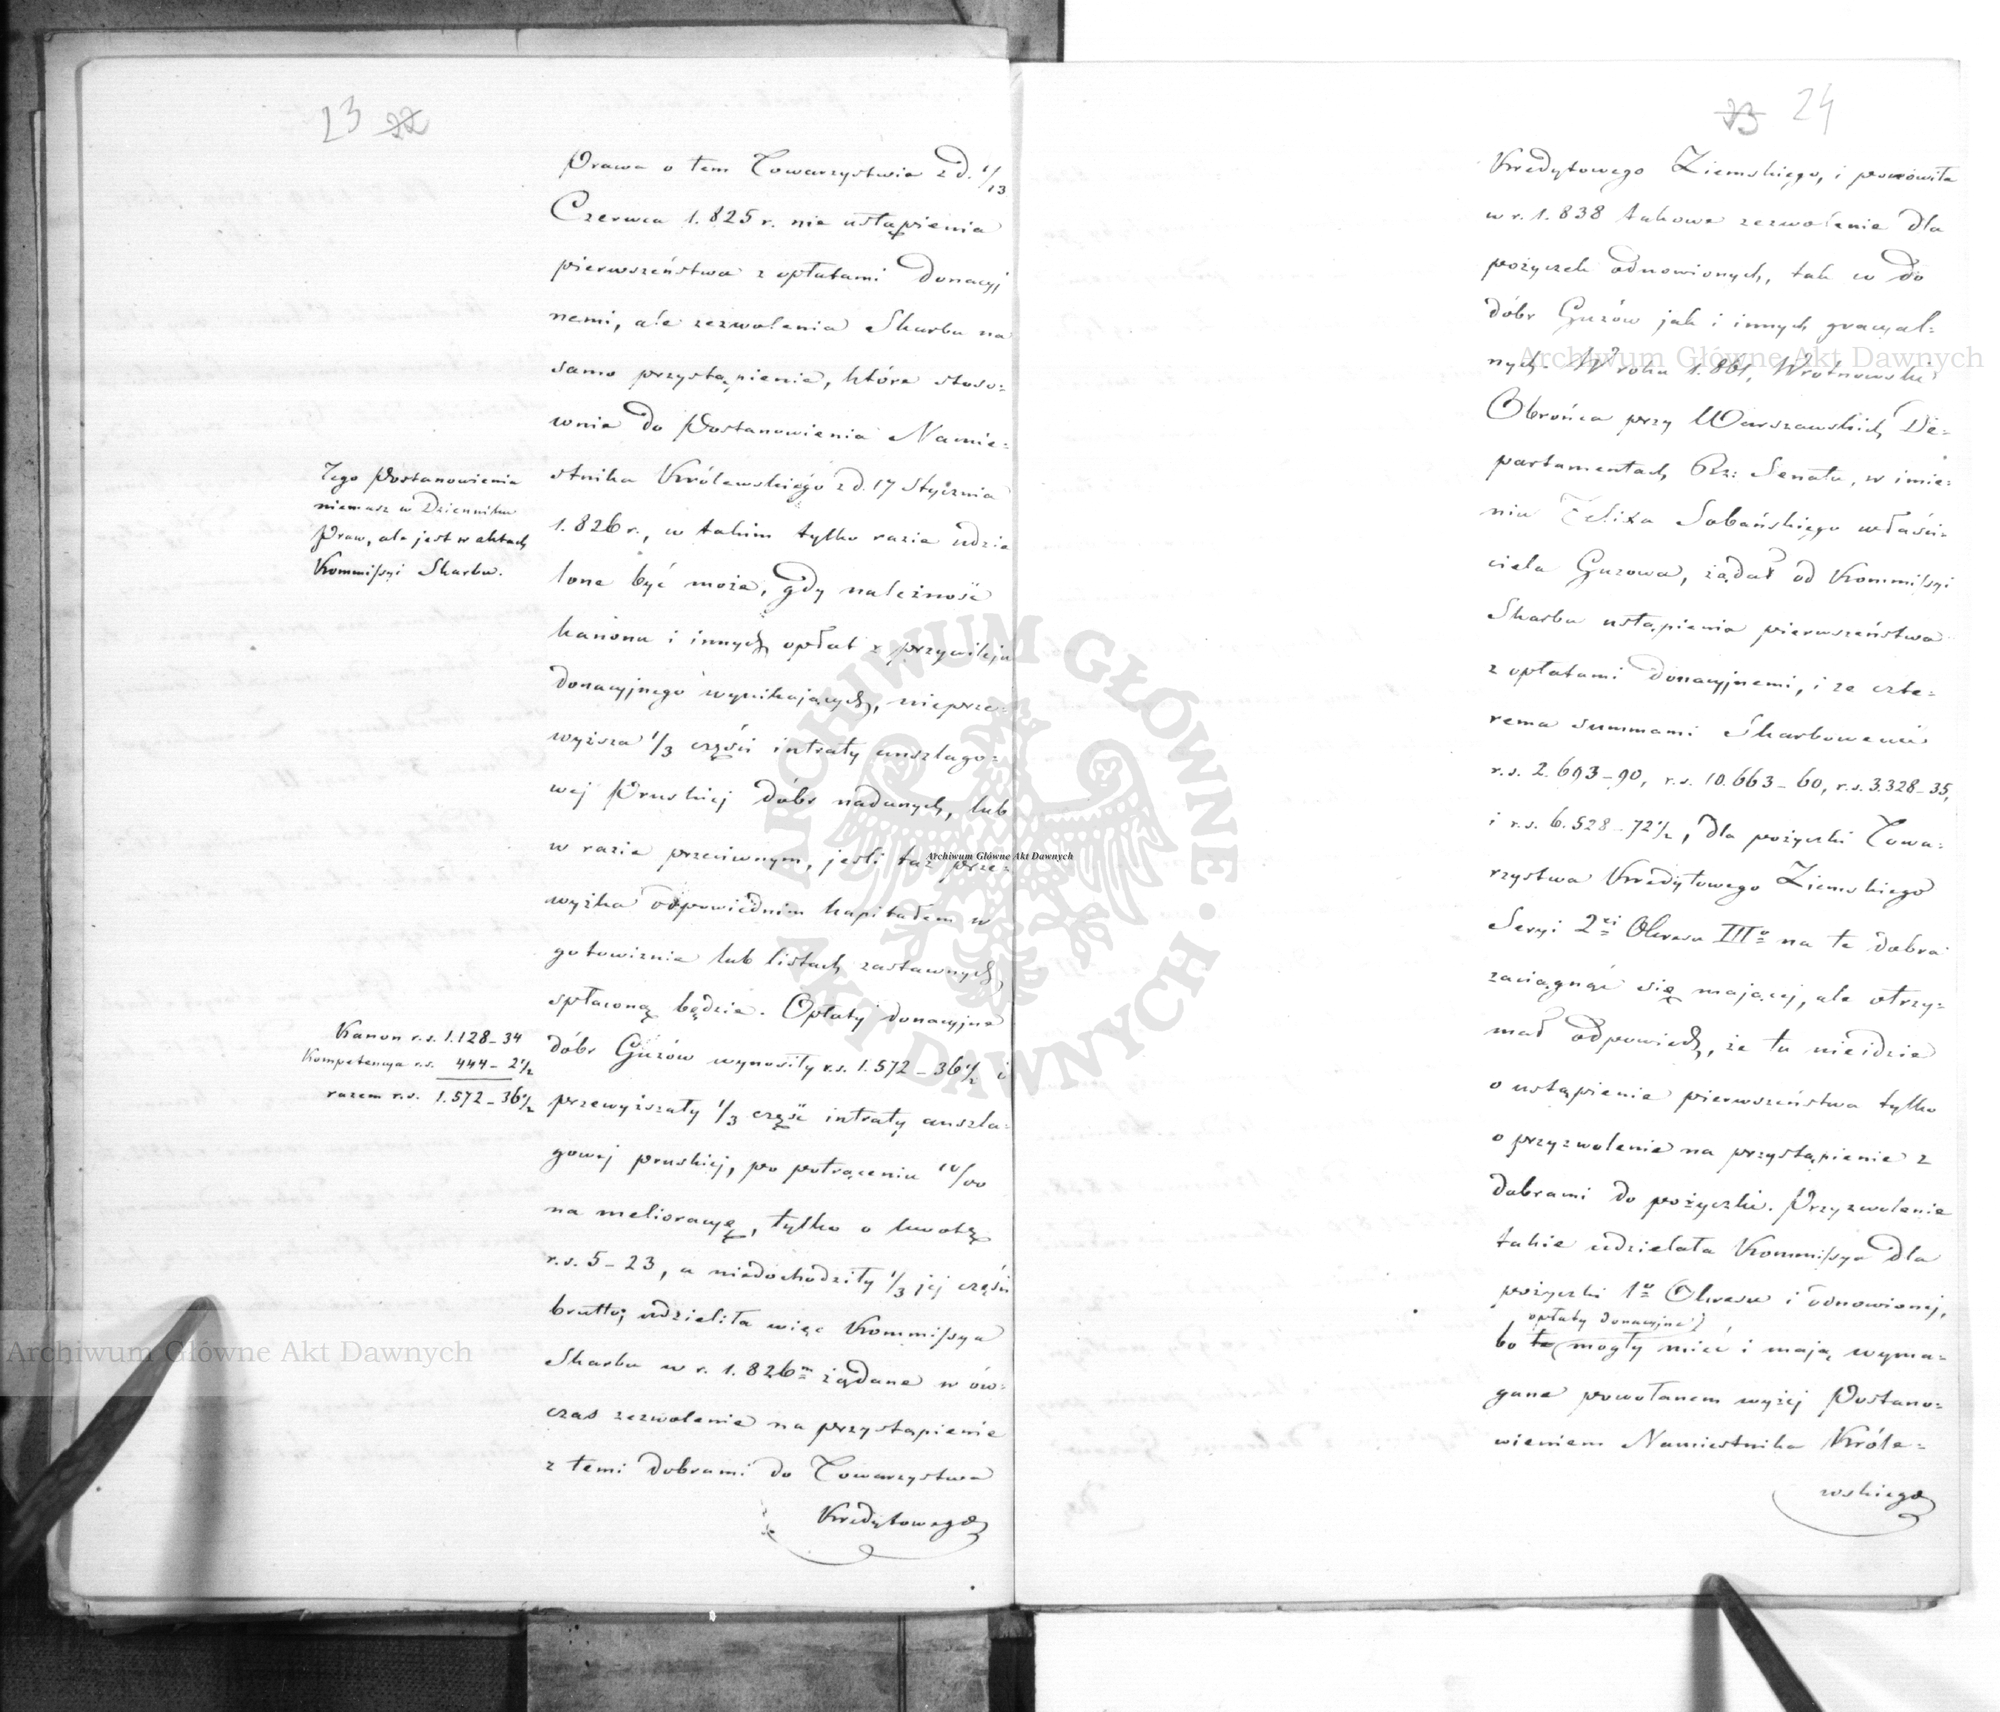 23 22
Prawa o tem Towarzystwie z d. 1/13
Czerwca 1.825 r. nie ustąpienia
pierwszeństwa z opłatami donacyj
nemi, ale zezwolenia Skarbu na
samo przystąpienie, które stoso=
wnie do Postanowienia Namie=
stnika Królewskiego z d. 17 Stycznia
1.826 r., w takim tylko razie udzie
lone być może, gdy należność
kanonu i innych opłat z przywileju
donacyjnego wynikających, nieprze=
wyższa 1/3 części intraty anszlago=
wej Pruskiej dóbr nadanych, lub
w razie przeciwnym, jeśli taż prze=
wyżka odpowiednim kapitałem w
gotowiznie lub listach zastawnych
spłaconą będzie. Opłaty donacyjne
dóbr Guzów wynosiły r.s. 1.572 – 36 1/2 i
przewyższały 1/3 część intraty anszla=
gowej pruskiej, po potrąceniu 10/00
na melioracyę, tylko o kwotę
r.s. 5 – 23, a niedochodziły 1/3 jej części
brutto; udzieliła więc Kommissya
Skarbu w r. 1.826m żądane w ów=
czas zezwolenie na przystąpienie
z temi dobrami do Towarzystwa
Kredytowego
Tego Postanowienia
niemasz w Dzienniku
Praw, ale jest w aktach
Kommissyi Skarbu.
Kanon r.s. 1.128 – 34
Kompetencya r.s. 444 – 2 1/2
razem r.s. 1.572 – 36 1/2
23 24
Kredytowego Ziemskiego, i ponowiła
w r. 1.838 takowe zezwolenie dla
pożyczek odnowionych, tak co do
dóbr Guzów jak i innych gracyal=
nych. W roku 1.861, Wrotnowski
Obrońca przy Warszawskich De=
partamentach Rz: Senatu, w imie=
niu Felixa Sobańskiego właści=
ciela Guzowa, żądał od Kommissyi
Skarbu ustąpienia pierwszeństwa
z opłatami donacyjnemi, i ze czte=
rema summami Skarbowemi
r.s. 2.693 – 90, r.s. 10.663 – 60, r.s. 3.328 – 35,
i r.s. 6.528 – 72 1/2, dla pożyczki Towa=
rzystwa Kredytowego Ziemskiego
Seryi 2ei Okresu IIIo na te dobra
zaciągnąć się mającej, ale otrzy=
mał odpowiedź, że tu nieidzie
o ustąpienie pierwszeństwa tylko
o przyzwolenie na przystąpienie z
dobrami do pożyczki. Przyzwolenie
takie udzielała Kommissya dla
pożyczki 1o Okresu i odnowionej,
opłaty donacyjne
bo te mogły mieć i mają wyma=
gane powołanem wyżej Postano=
wieniem Namiestnika Króle=
wskiego
Archiwum Główne Akt Dawnych
Archiwum Główne Akt Dawnych
Archiwum Główne Akt Dawnych
ARCHIWUM GŁÓWNE · AKT DAWNYCH